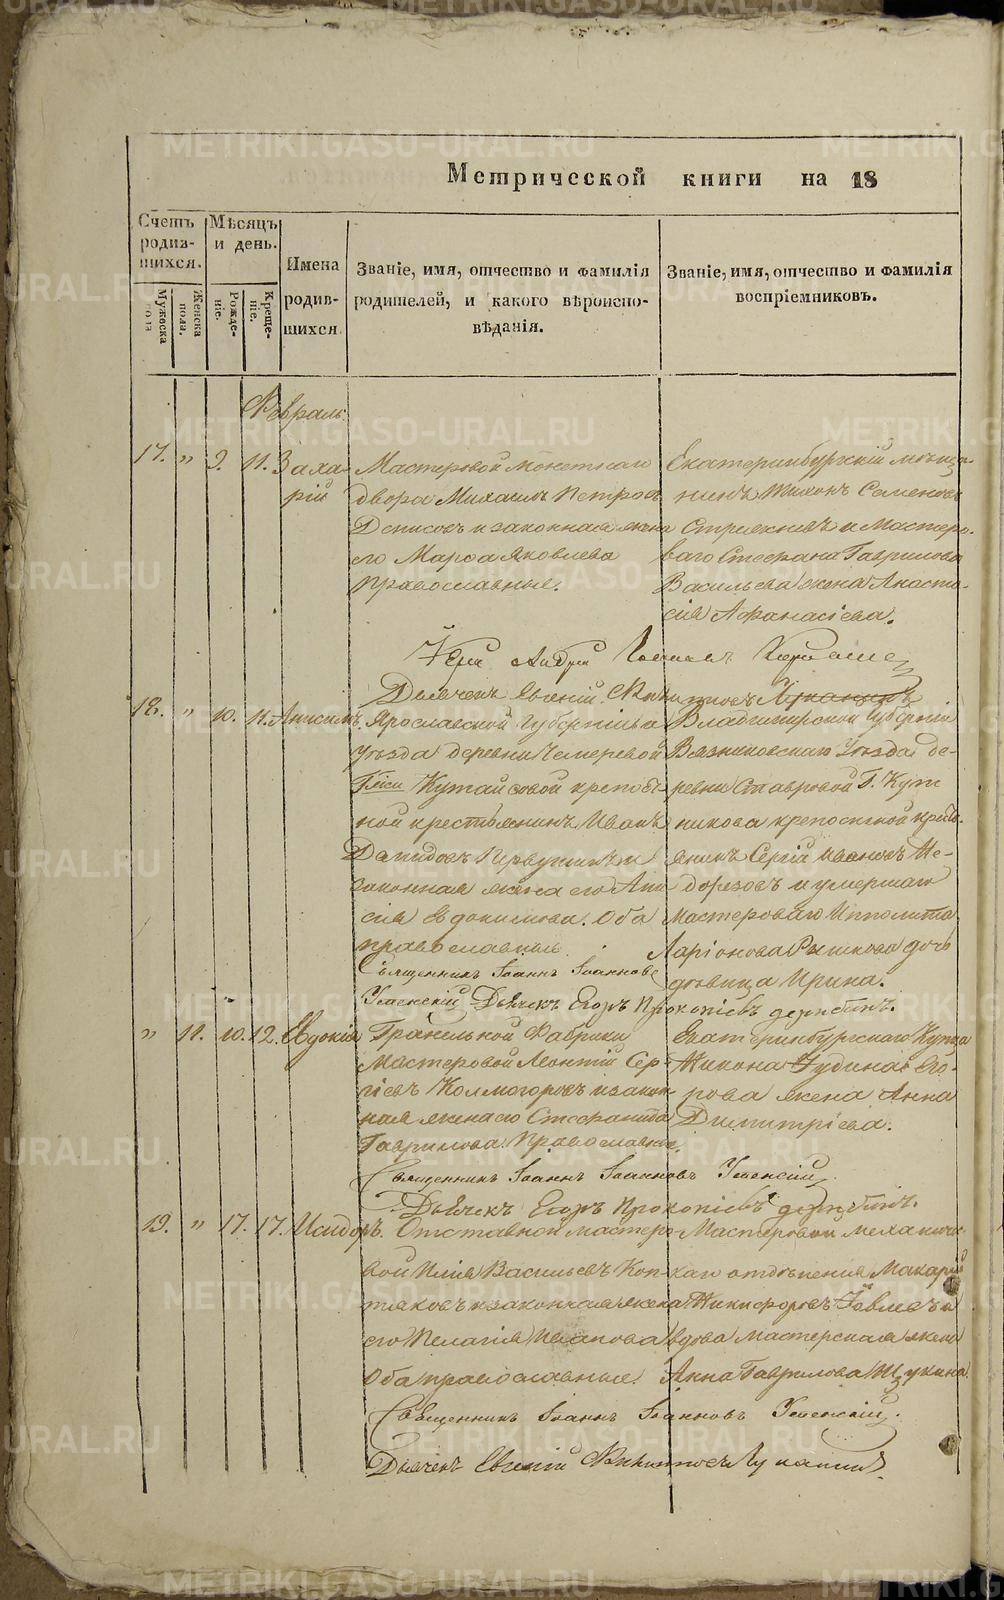 Метрической книги на 18
Счетъ родив-шихся.
Мѣсяцъ и день.
Имена родив-шихся
Званіе, имя, отчество и фамилія родителей, и какого вѣроиспо-вѣданія.
Званіе, имя, отчество и фамилія воспріемниковъ.
Мужеска пола
Женска пола.
Рожде-ніе.
Креще-ніе.
Февраль
17. " 9. 11. Заха-рій
Мастеровой монетнаго
двора Михаилъ Петровъ
Денисовъ и законная жена
его Марѳа Яковлева
православные.
Екатеринбургскій мѣща-
нинъ Тихонъ Семеновъ
Стрижневъ и Мастеро-
ваго Стефана Гаврилова
Васильева жена Анаста-
сія Афанасіева.
Дьячекъ Евгеній Никитовъ
18. " 10. 11. Анисимъ.
Ярославской Губерніи
уѣзда деревни Чемеревой
Г-жи Кутайсовой крѣпост-
ной крестьянинъ Иванъ
Давидовъ Первушинъ и
законная жена его Ани-
сія Евдокимова. Оба
православные
Владимирской Губерніи
Вязниковскаго Уѣзда де-
ревни Ставровой Г.
крепостной кресть-
янинъ Сергій Ивановъ
и умершаго
мастероваго Ипполита
Ларіонова Рыжкова дочь
дѣвица Ирина.
Священникъ Іоаннъ Іоанновъ
Успенскій Дьячекъ Егоръ Прокопіевъ Дерябинъ.
" 11. 10. 12. Евдокія
Гранильной Фабрики
мастеровой Леонтій Сер-
гіевъ Колмогоровъ и закон-
ная жена его Стефанида
Гаврилова. Православные.
Екатеринбургскаго Купца
Тихона Гудина Его-
рова жена Анна
Димитріева.
Священникъ Іоаннъ Іоанновъ Успенскій
Дьячекъ Егоръ Прокопіевъ Дерябинъ.
19. " 17. 17. Исидоръ.
Отставной мастеро-
вой Илія Васильевъ Коп-
тяковъ и законная жена
его Пелагія Иванова
Оба православные.
Мастеровой механиче-
скаго отдѣленія Макарій
Никифоровъ Говлевъ и
вдова мастерская жена
Анна Гаврилова Щукина.
Священникъ Іоаннъ Іоанновъ Успенскій.
Дьячекъ Евгеній Никитовъ Луканинъ.
METRIKI.GASO-URAL.RU